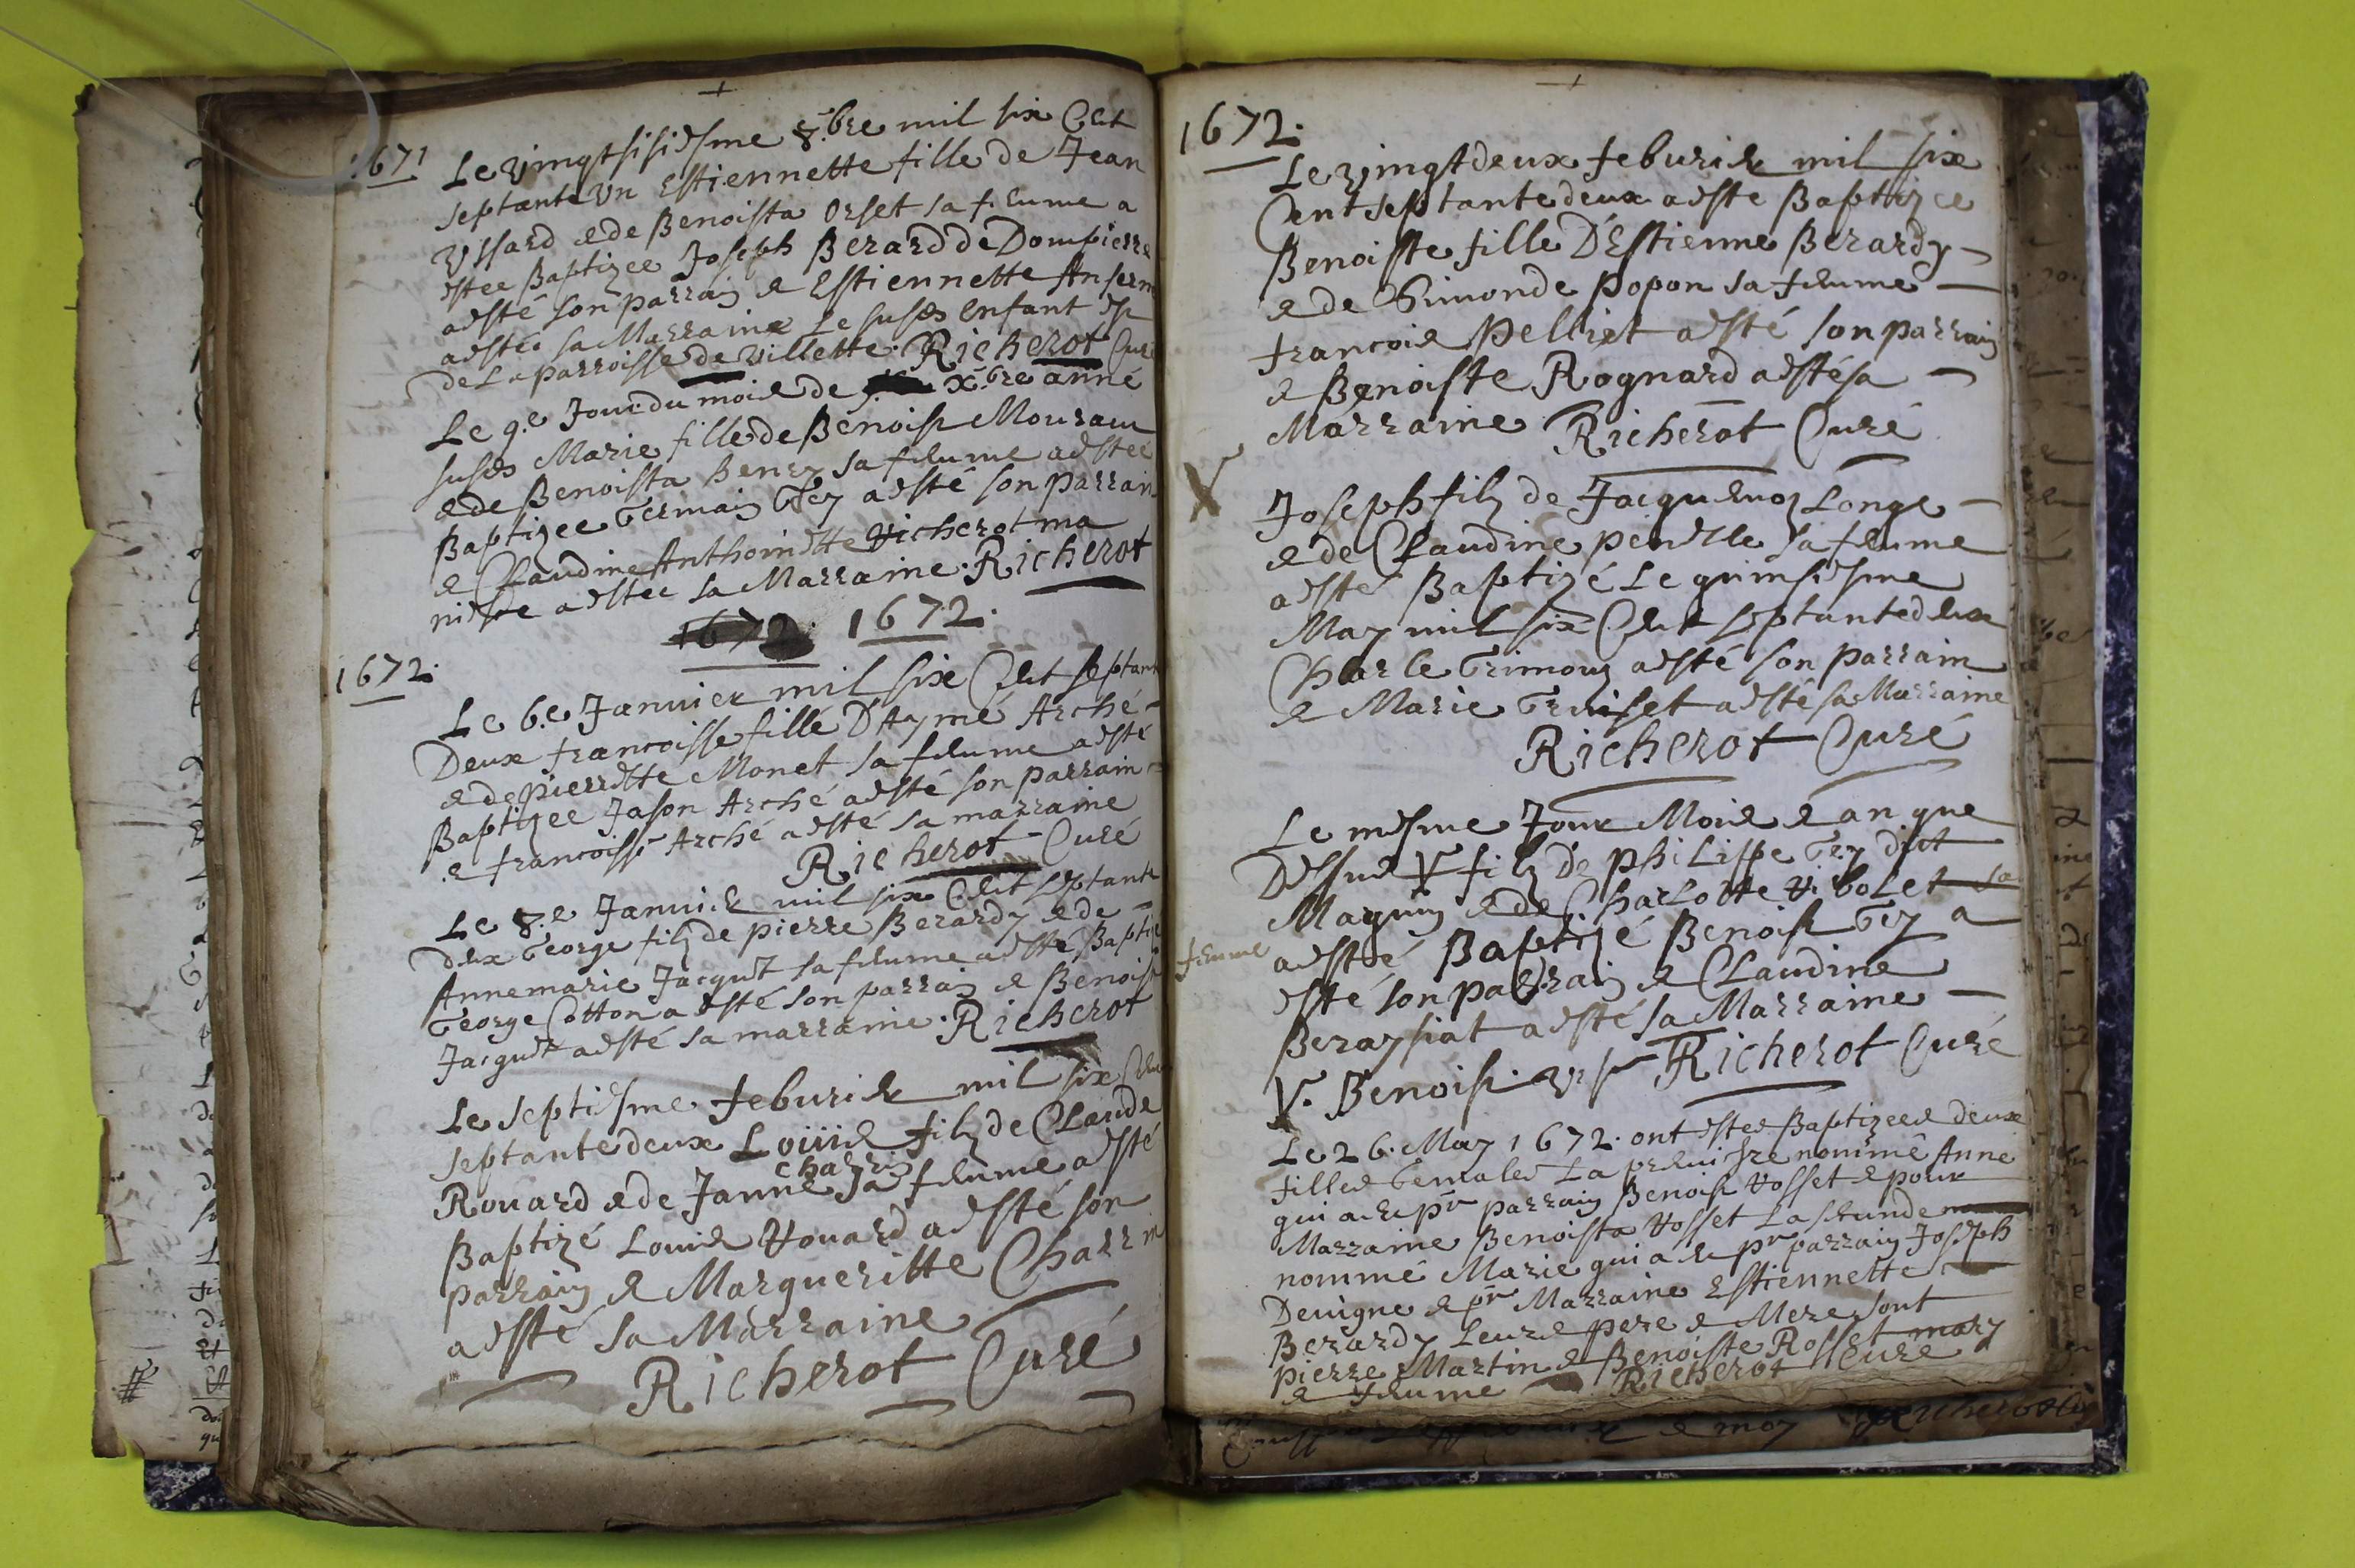 1671
Le vingtsisiesme 8.bre mil six Cent
septante Un Estiennette fille de Jean
Vssard & de Benoista Orset sa femme a
estee Baptizee Joseph Berard de Dompierre
a esté son parrain & Estiennette
a estee sa Marraine Le susdt enfant est
de La parroisse de Villette. Richerot Curé
Le 9.e Jour du mois de Xbre anné
susdt Marie fille de Benoist Mouraux
& de Benoista Benry sa femme a estee
Baptizee Germain Gey a esté son parrain
& Claudine Anthoinette Richerot ma
niepce a estee sa Marraine. Richerot
1672. 1672.
1672.
Le 6.e Janvier mil six Cent septante
Deux francoisse fille D'Aymé Arché
& de pierrette Monet sa femme a esté
Baptizee Jason Arché a esté son parrain
& francoisse Arché a esté sa marraine
Richerot Curé
Le 8.e Janvier mil six Cent septante
deux George filz de pierre Berardy & de
Annemarie Jaquet sa femme a esté Baptizé
George Cotton a esté son parrain & Benoist
Jaquet a esté sa marraine. Richerot
Le septiesme feburier mil six Cent
septante deux Loüis filz de Claude
Rouard & de Janne Charrin sa femme a esté
Baptizé Louis Rouard a esté son
parrain & Margueritte Charrin
a esté sa Marraine
Richerot Curé
1672.
Le vingt deux feburier mil six
Cent septante deux a esté Baptizee
Benoiste fille D'Estienne Berardy
& de Simonde Popon sa femme
francois Pelliet a esté son parrain
& Benoiste Rognard a esté sa
Marraine Richerot Curé
Joseph filz de Jaquenoz Longe
& de Claudine penelle sa femme
a esté Baptizé Le quinsiesme
May mil six Cent septante deux
Charle Grimou a esté son parrain
& Marie Gruiset a esté sa Marraine
Richerot Curé
Le mesme Jour Mois & an que
Dessus V filz de Philippe Gey dict
Maguin & de Charlotte Vibolet sa
femme
a esté Baptizé Benoist Gey a
esté son parrain & Claudine
Beraysiat a esté sa Marraine
V. Benoist. Richerot Curé
Le 26. May 1672. ont estes Baptizees deux
filles Gemales La premiere nommé Anne
qui a eu pr parrain Benoist Vosset & pour
Marraine Benoista Vosset La seconde
nommé Marie qui a eu pr parrain Joseph
Devigne & pr Marraine Estiennette
Berardy Leurs pere & Mere sont
pierre Martin & Benoiste Rosset mary
& femme Richerot Curé
& moy